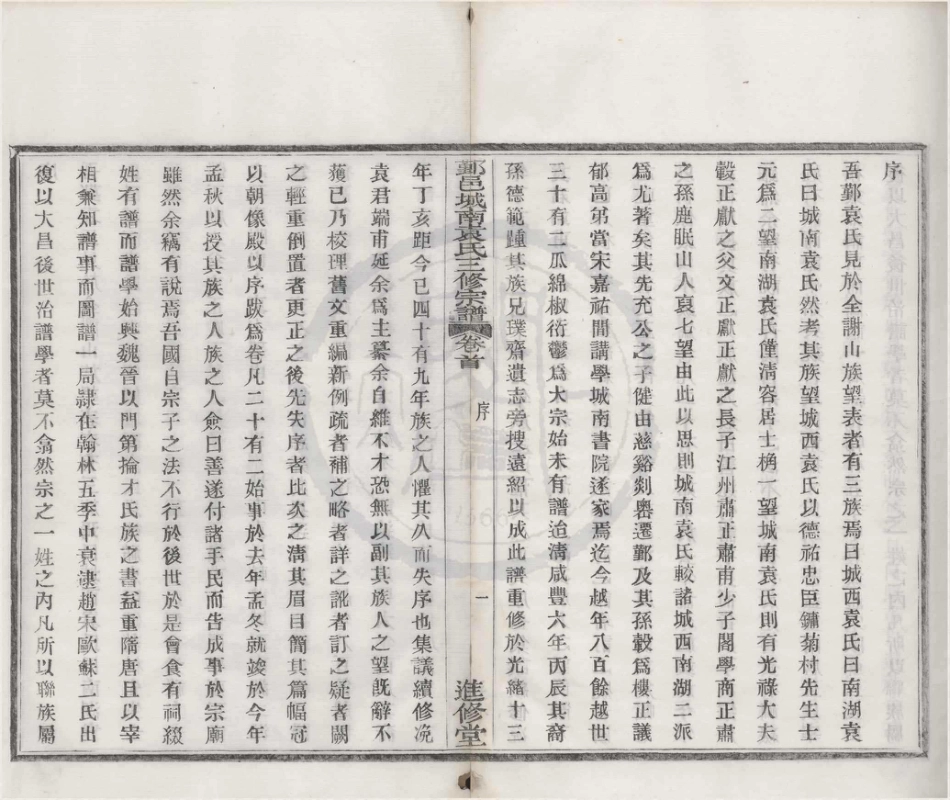 序
吾鄞袁氏見於全謝山族望表者有三族焉曰城西袁氏曰南湖袁
氏曰城南袁氏然考其族望城西袁氏以德祐忠臣鏞菊村先生士
元爲二望南湖袁氏僅清容居士桷一望城南袁氏則有光祿大夫
轂正獻之父文正獻正獻之長子江州肅正肅甫少子閣學商正肅
之孫鹿眠山人裒七望由此以思則城南袁氏較諸城西南湖二派
爲尤著矣其先充公之子健由慈谿剡嶴遷鄞及其孫轂爲樓正議
郁高弟當宋嘉祐間講學城南書院遂家焉迄今越年八百餘越世
三十有二瓜綿椒衍鬱爲大宗始未有譜迨淸咸豐六年丙辰其裔
孫德範踵其族兄璞齋遺志旁搜遠紹以成此譜重修於光緒十三
鄞邑城南袁氏三修宗譜 卷首 序 一 進修堂
年丁亥距今已四十有九年族之人懼其久而失序也集議續修況
袁君端甫延余爲主纂余自維不才恐無以副其族人之望既辭不
獲已乃校理舊文重編新例疏者補之略者詳之訛者訂之疑者闕
之輕重倒置者更正之後先失序者比次之淸其眉目簡其篇幅冠
以朝像殿以序跋爲卷凡二十有二始事於去年孟冬就竣於今年
孟秋以授其族之人族之人僉曰善遂付諸手民而告成事於宗廟
雖然余竊有說焉吾國自宗子之法不行於後世於是會食有祠綴
姓有譜而譜學始興魏晉以門第掄才氏族之書益重隋唐且以宰
相兼知譜事而圖譜一局隸在翰林五季中衰逮趙宋歐蘇二氏出
復以大昌後世治譜學者莫不翕然宗之一姓之內凡所以聯族屬